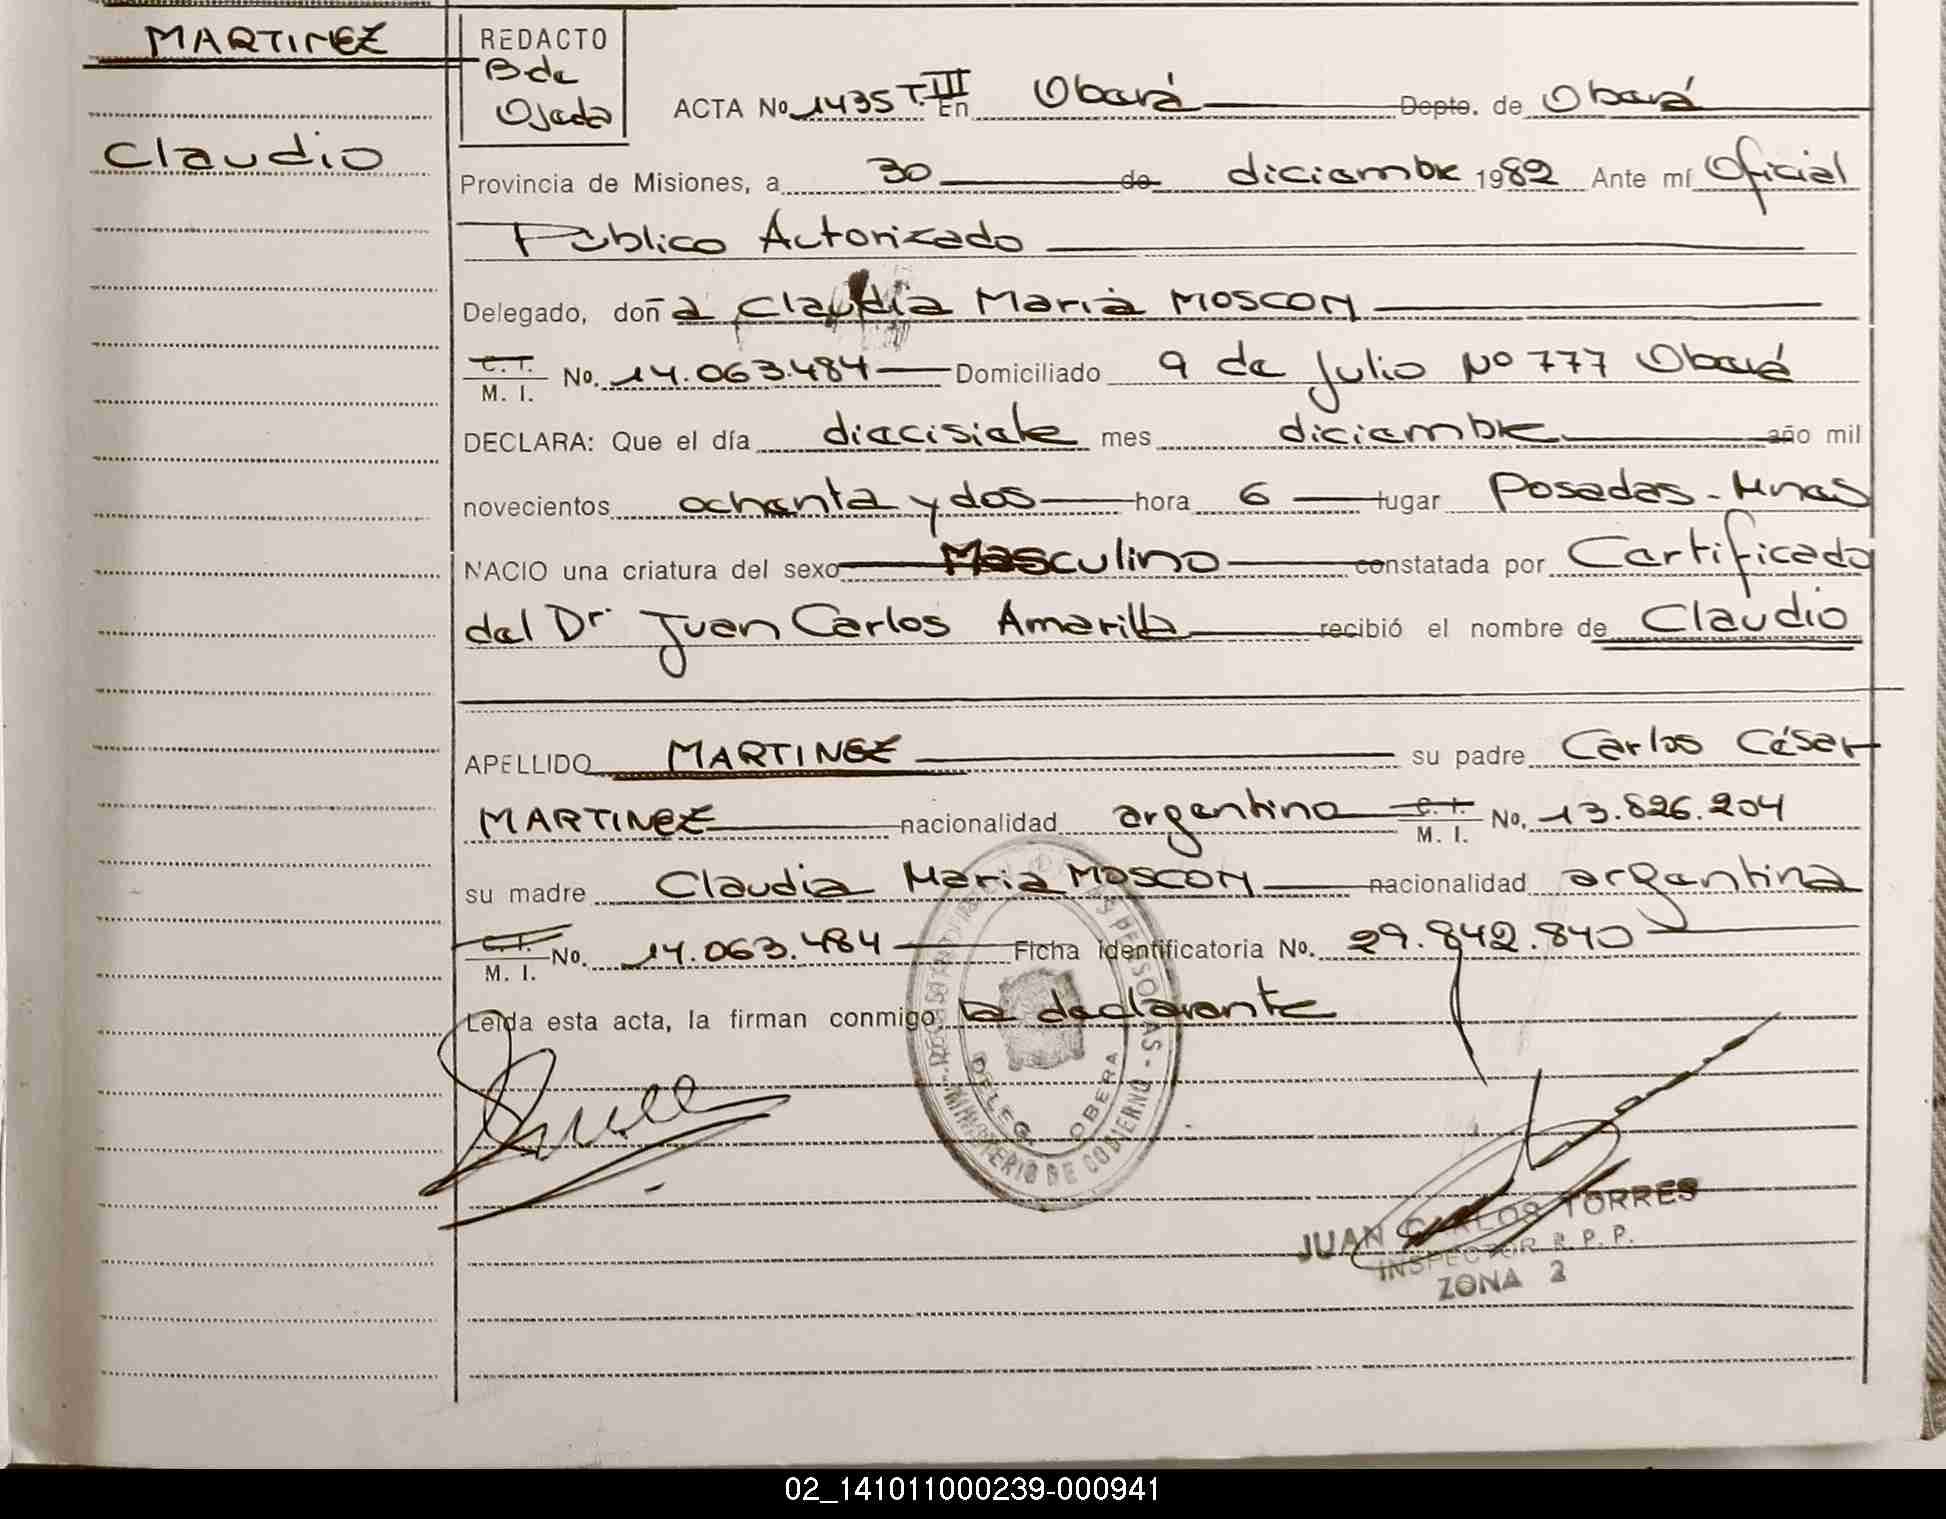 MARTINEZ
Claudio
REDACTO
Bde
Ojeda
ACTA No 1435 T.III En Oberá Depto. de Oberá
Provincia de Misiones, a 30 de diciembre 1982 Ante mí Oficial
Público Autorizado
Delegado, doña Claudia Maria MOSCON
C. I. M. I. No. 14.063.484 Domiciliado 9 de Julio No 777 Oberá
DECLARA: Que el día diecisiete mes diciembre año mil
novecientos ochenta y dos hora 6 lugar Posadas - Mnes
NACIO una criatura del sexo Masculino constatada por Certificado
del Dr Juan Carlos Amarilla recibió el nombre de Claudio
APELLIDO MARTINEZ su padre Carlos César
MARTINEZ nacionalidad argentino C. I. M. I. No. 13.826.204
su madre Claudia Maria MOSCON nacionalidad argentina
C. I. M. I. No. 14.063.484 Ficha identificatoria No. 29.842.840
Leída esta acta, la firman conmigo la declarante
DELEG. OBERA
MINISTERIO DE GOBIERNO
JUAN CARLOS TORRES
INSPECTOR R. P. P.
ZONA 2
02_141011000239-000941